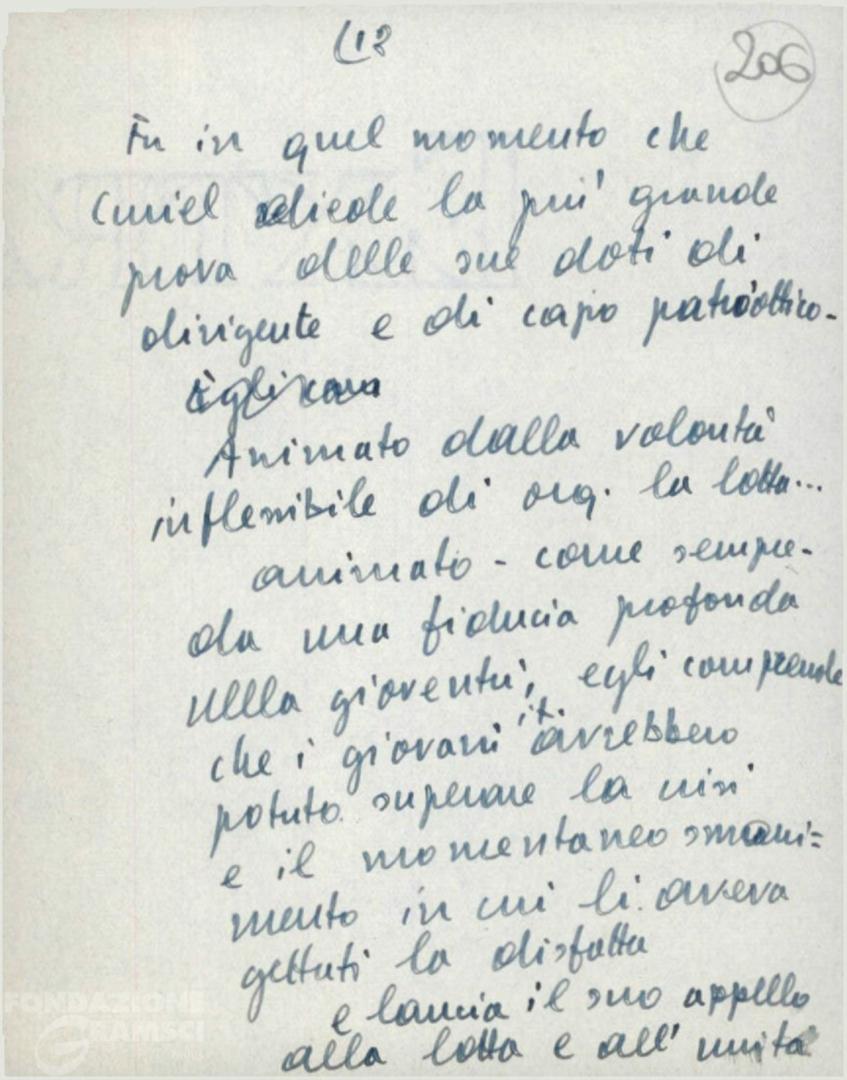 (18
206
Fu in quel momento che
Curiel diede la piu' grande
prova delle sue doti di
dirigente e di capo patriottico.
Egli
Animato dalla volontà
inflessibile di org. la lotta...
animato - come sempre -
da una fiducia profonda
nella gioventu', egli comprende
che i giovani it. avrebbero
potuto superare la crisi
e il momentaneo smarri=
mento in cui li aveva
gettati la disfatta
e lancia il suo appello
alla lotta e all' unità
FONDAZIONE
GRAMSCI